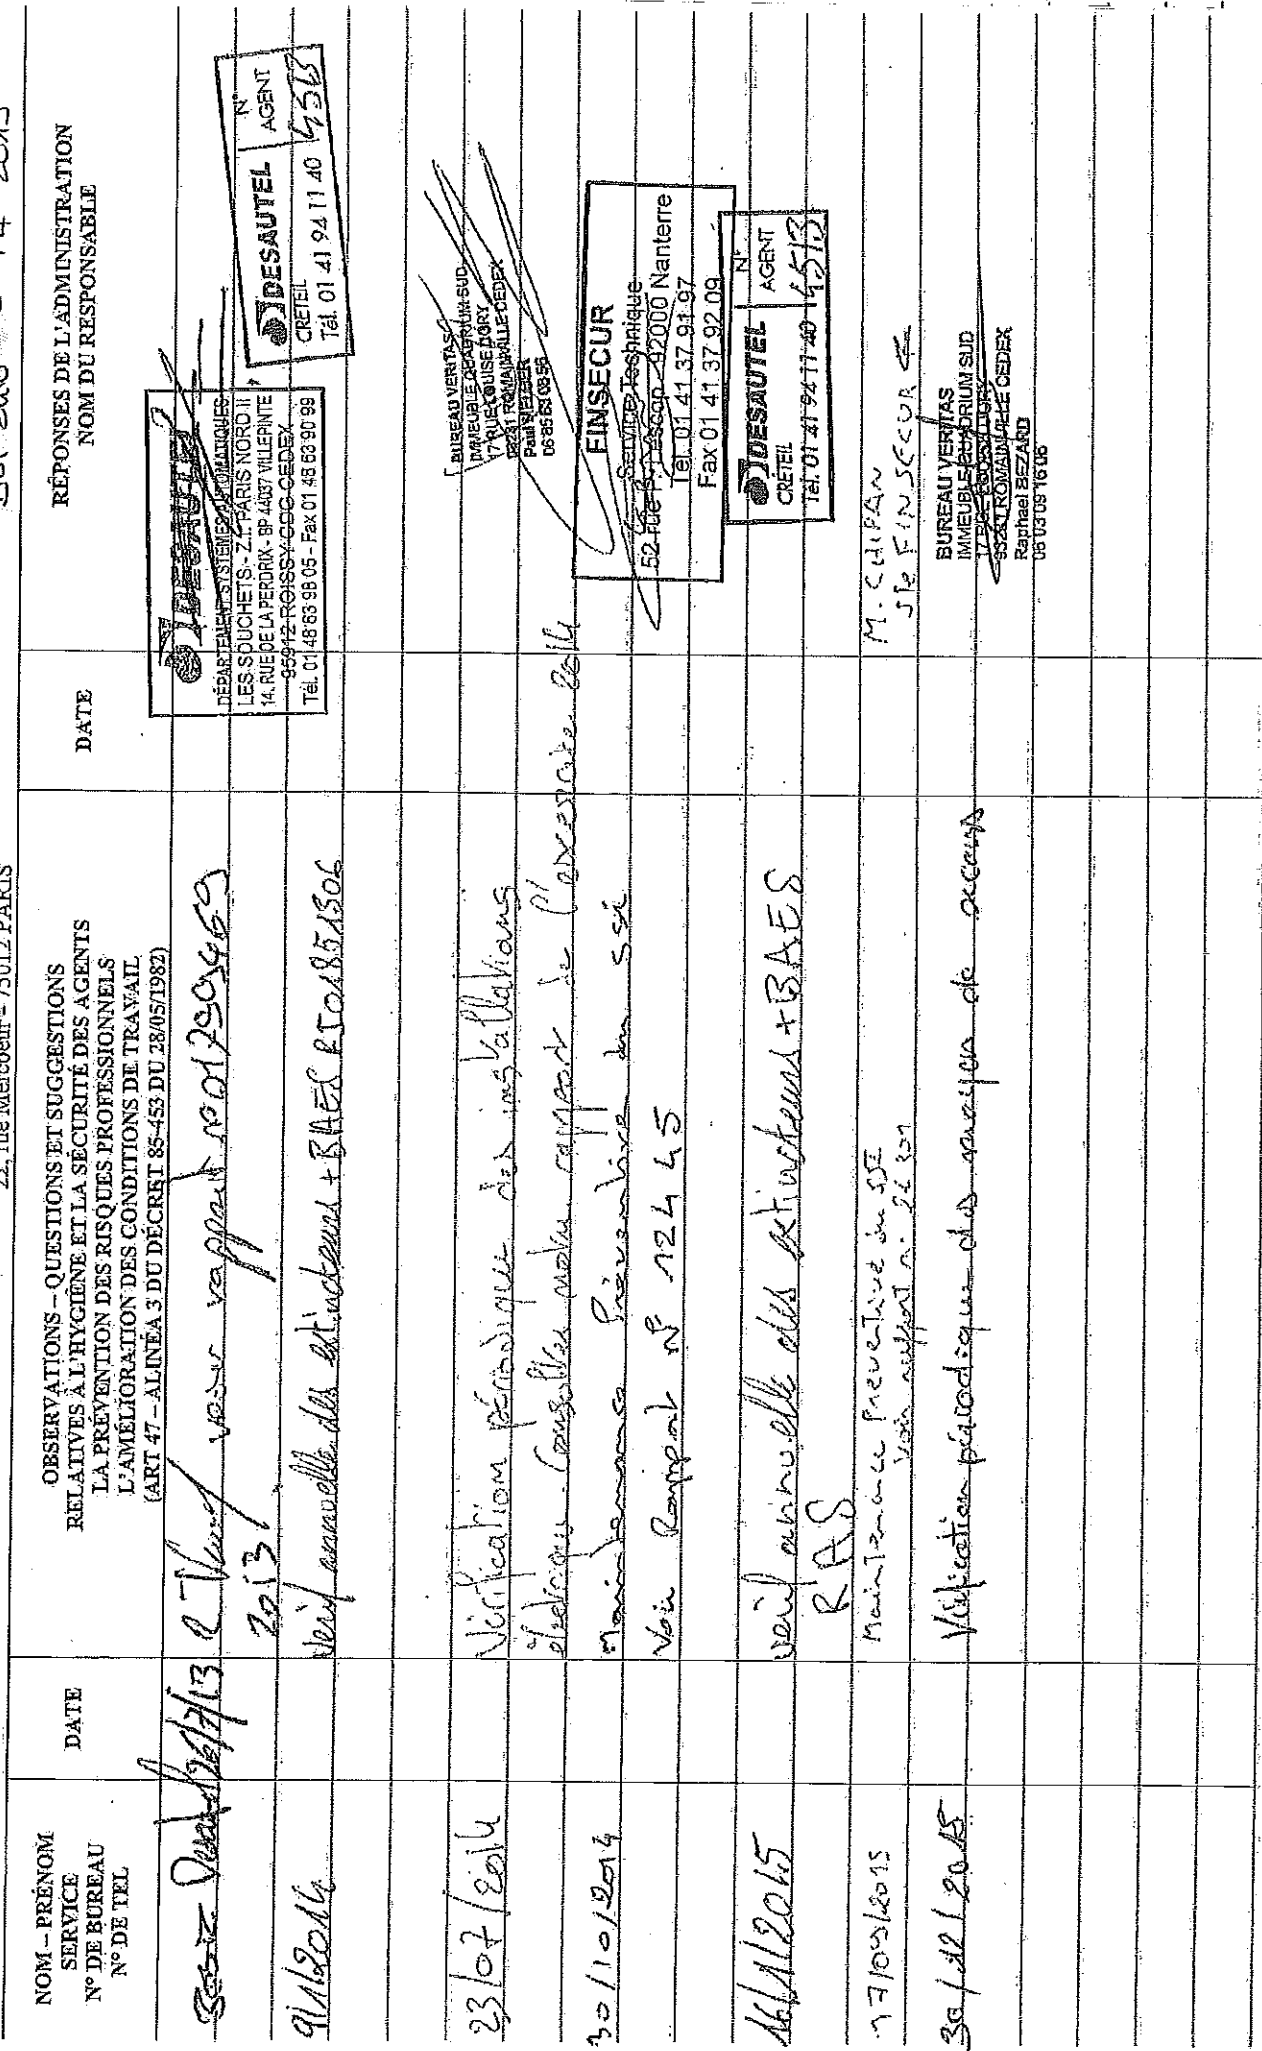 22, rue Mercoeur - 75012 PARIS
NOM – PRÉNOM
SERVICE
N° DE BUREAU
N° DE TEL
DATE
OBSERVATIONS – QUESTIONS ET SUGGESTIONS
RELATIVES À L'HYGIÈNE ET LA SÉCURITÉ DES AGENTS
LA PRÉVENTION DES RISQUES PROFESSIONNELS
L'AMÉLIORATION DES CONDITIONS DE TRAVAIL
(ART 47 – ALINÉA 3 DU DÉCRET 85-453 DU 28/05/1982)
DATE
RÉPONSES DE L'ADMINISTRATION
NOM DU RESPONSABLE
26/7/13
voir rapport
2013
DESAUTEL
DÉPARTEMENT SYSTÈMES AUTOMATIQUES
LES SOUCHETS - Z.I. PARIS NORD II
14, RUE DE LA PERDRIX - BP 44037 VILLEPINTE
95912 ROISSY CDG CEDEX
Tél. 01 48 63 98 05 - Fax 01 48 63 90 99
9/1/2014
Verif annuelle des extincteurs + BAES
DESAUTEL N°
AGENT
CRÉTEIL
Tél. 01 41 94 11 40 4513
23/07/2014
Vérification périodique des installations
électriques. Consultez notre rapport de l'exercice 2014
BUREAU VERITAS
IMMEUBLE QUADRIUM SUD
17 RUE LOUISE DORY
93231 ROMAINVILLE CEDEX
Paul
30/10/2014
Maintenance Préventive du SSI
Voir Rapport N° 12445
FINSECUR
Service Technique
92000 Nanterre
Tél. 01 41 37 91 97
Fax 01 41 37 92 09
16/1/2015
verif annuelle des extincteurs + BAES
RAS
DESAUTEL N°
AGENT
CRÉTEIL
Tél. 01 41 94 11 40 4513
17/09/2015
Maintenance Preventive du SSI
Voir rapport n°
M.
Sté FINSECUR
30/12/2015
Vérification périodique des moyen de secours
BUREAU VERITAS
IMMEUBLE QUADRIUM SUD
93231 ROMAINVILLE CEDEX
Raphael BEZARD
06 03 09 16 06